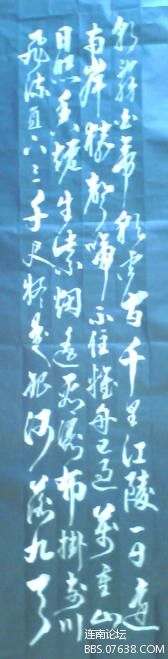 朝辞白帝彩云间千里江陵一日还
两岸猿声啼不住轻舟已过萬重山
日照香炉生紫烟遥看瀑布掛前川
飞流直下三千尺疑是银河落九天
连南论坛
BBS.07638.COM